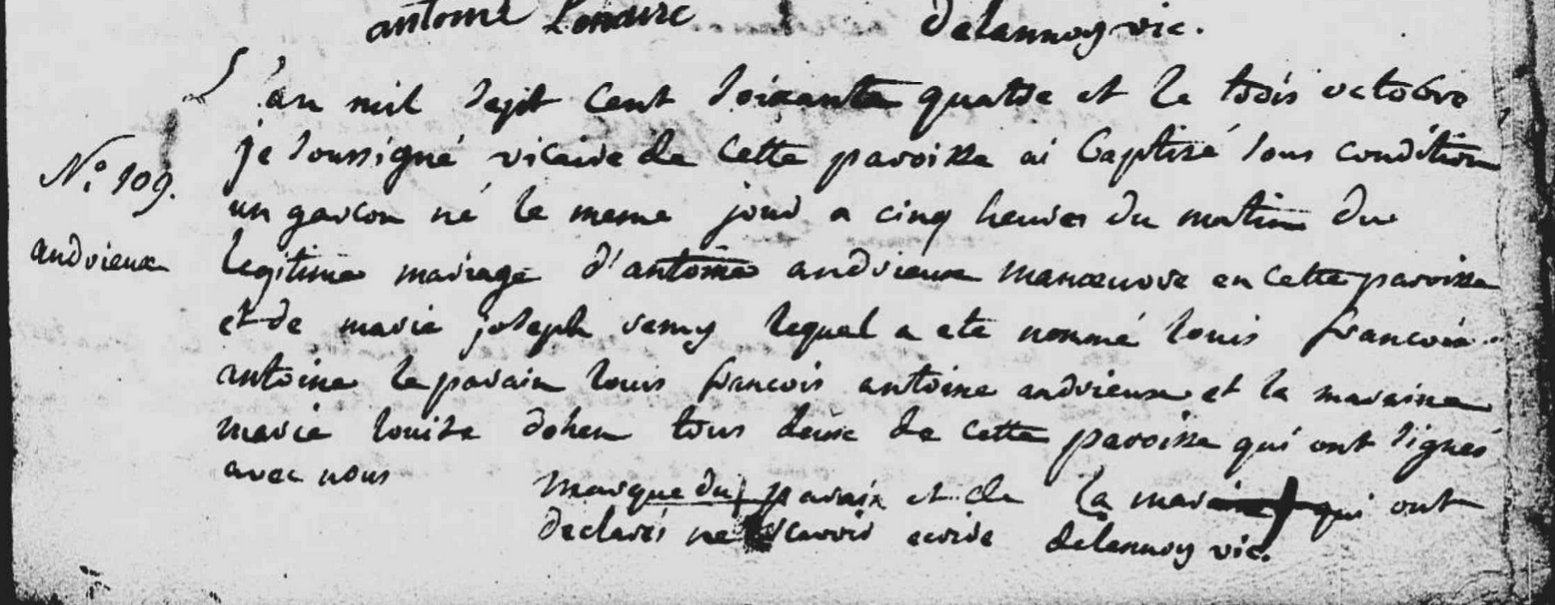 antoine Lemaire delannoy vic.
L'an mil sept cent soixante quatre et le trois octobre
je soussigné vicaire de cette paroisse ai baptisé sous condition
N.o 109.
un garcon né le meme jour a cinq heures du matin du
andrieux
legitime mariage d'antoine andrieux manœuvre en cette paroisse
et de marie joseph remy lequel a ete nommé louis francois
antoine le parain louis francois antoine andrieux et la maraine
marie louise dohen tous deux de cette paroisse qui ont signés
avec nous
marque du parain et de la maraine qui ont
declarés ne scavoir ecrire delannoy vic.